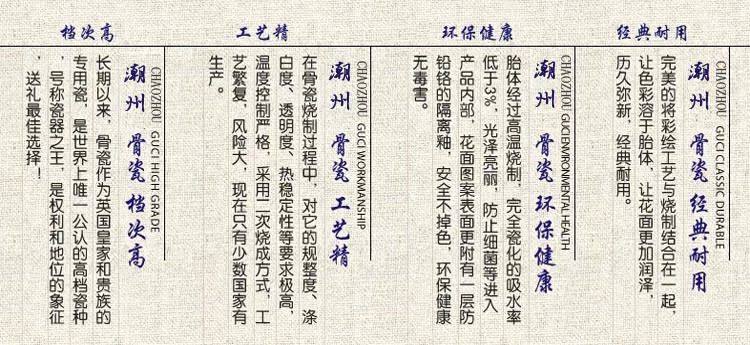 档次高
CHAOZHOU GUCI HIGH GRADE
潮州 骨瓷 档次高
长期以来，骨瓷作为英国皇家和贵族的
专用瓷，是世界上唯一公认的高档瓷种
，号称瓷器之王，是权利和地位的象征
，送礼最佳选择！
工艺精
CHAOZHOU GUCI WORKMANSHIP
潮州 骨瓷 工艺精
在骨瓷烧制过程中，对它的规整度、涤
白度、透明度、热稳定性等要求极高，
温度控制严格，采用二次烧成方式，工
艺繁复，风险大，现在只有少数国家有
生产。
环保健康
CHAOZHOU GUCI ENVIRONMENTAL HEALTH
潮州 骨瓷 环保健康
胎体经过高温烧制，完全瓷化的吸水率
低于3%，光泽亮丽，防止细菌等进入
产品内部，花面图案表面更附有一层防
铅铬的隔离釉，安全不掉色，环保健康
无毒害。
经典耐用
CHAOZHOU GUCI CLASSIC DURABLE
潮州 骨瓷 经典耐用
完美的将彩绘工艺与烧制结合在一起，
让色彩溶于胎体，让花面更加润泽，
历久弥新，经典耐用。